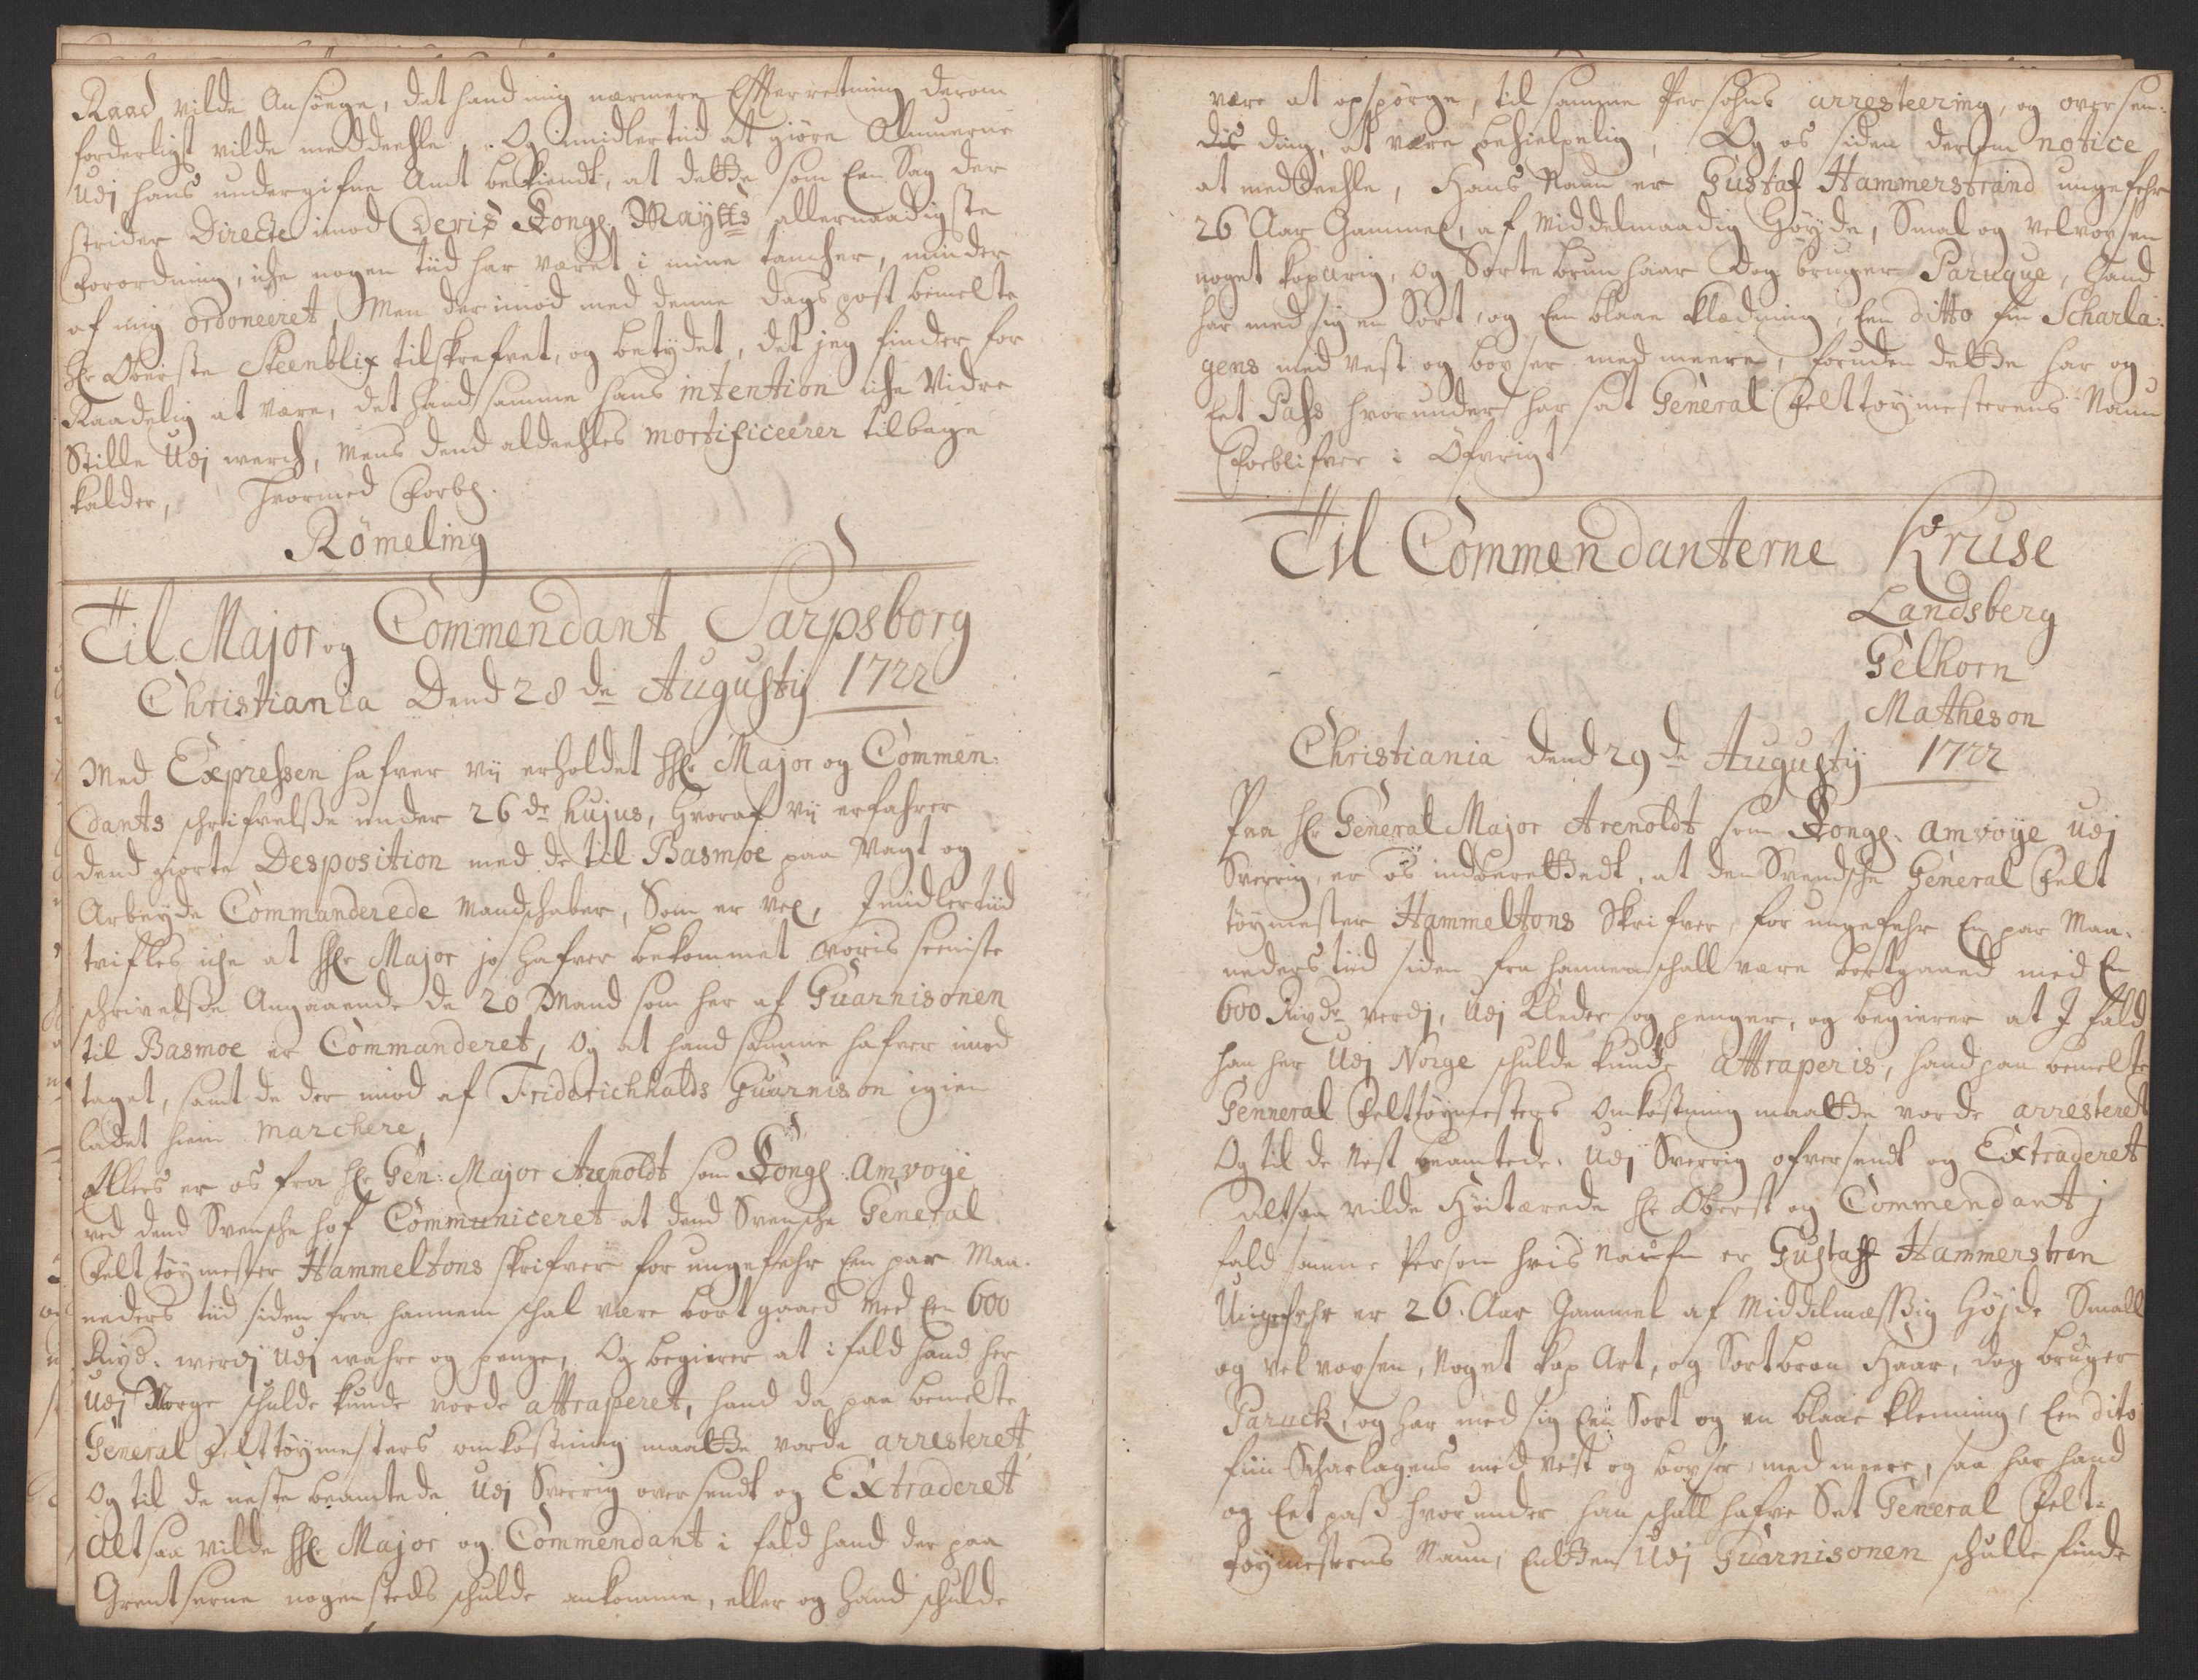 Raad vilde Ansøege, det hand mig nærmere Effterretning derom
forderligst vilde meddeehle, Og imidlertiid at giøre Almuerne
Udj hans undergifne Amt bekiendt, at dette som Een Sag der
strider Directe imod Deris Kongl Maytts allernaadigste
Forordning, iche nogen tiid har været i mine tancher, minder
af mig ordoneeret, Men derimod med denne dags post bemelte
Hr Oberste Steenblix tilskrefvet, og betydet, det jeg finder for
Raadelig at være, det hand samme hans intention iche Vidre
Stille Udj werch, Mens dend aldeehles mortificeerer tilbage
kalder, Hvormed Forbl.
Römeling
Til Major og Commendant Sarpsborg
Christiania Dend 28de Augustij 1722
Med Expressen hafver vij erholdet Hr Major og Commen-
dants schrifvelsse under 26de hujus, hvoraf vij erfahrer
dend giorte Desposition med de til Basmoe paa Vagt og
Arbeyde Commanderede Mandschaber, Som er vel, Imidlertiid
tvifles iche at Hr Major jo hafver bekommet voris seeniste
schrivelsse Angaaende de 20 Mand som her af Guarnisonen
til Basmoe er Commanderet, Og at hand samme hafver imod
taget, samt de der imod af Friderichhalds Guarnison igien
ladet hiem marchere,
Ellers er os fra Hr Gen: Major Arenoldt som Kongl: Amvoye
ved dend Svensche hof Communiceret at dend Svensche General
Felttøymester Hammeltons skrifver for ungefehr Een par Maa-
neders tiid siden fra hannem schal være bortgaaed med Een 600
Rixd. werdj Udj wahre og penge, Og begierer at i fald hand her
Udj Norge schulde kunde vorde attraperet, hand da paa bemelte
General Felttøymesters omkostning maatte vorde arresteret
Og til de neste beamtede Udj Sverrig oversendt og Extraderet
Altsaa vilde Hr Major og Commendant i fald hand der paa
Grentserne nogensteds schulde ankomme, eller og hand schulde
være at opspørge, til samme Persohns arresteering, og oversen-
ding, at være behielpelig, Og os siden derom notice
at meddeehle, Hans Naun er Gustaf Hammerstrand ungefehr
26 Aar Gammel, af Middelmaadig Höyde, Smal og velvoxsen
noget kopurig, og Sorte brun haar dog bruger Paruque, hand
har med sig en Sort, og Een blaae klædning, Een ditto fin Scharla-
gens med vest og boxser med meere, foruden dette har og
Eet Pass hvorunder har sat General Felttøymesterens Naun
Forblifver i Öfvrigt
Til Commendanterne Kruse
Landsberg
Gelhorn
Matheson
Christiania dend 29de Augustij 1722
Fra Hr General Major Arenoldt som Kongl. Amvoÿe Udj
Sverrig, er os indberettedt, at den Svendsche General Felt
töymester Hammeltons Skrifver, for ungefehr En par Maa-
neders tiid siden fra hannem schall være bortgaaed med En
600 Rixdr verdj, Udj Kleder og penger, og begierer at I fald
han her Udj Norge schulde kunde attraperis, hand paa bemelte
Genneral Felttöymesters Omkostning maatte vorde arresteret
Og til de Nest beamtede, Udj Sverrig ofversendt og Extraderet
Altsaa vilde Höitærede Hr Oberst og Commendant j
fald samme Person hvis Naufn er Gustaff Hammerstran
Ungefehr er 26. Aar Gammel af Middelmæssig Höjde Small
og vel voxsen, Noget kop Art, og Sortbron Haar, dog bruger
Paruck, og har med sig Een Sort og en blaae klenning, Een dito
fiin Scharlagens med vest og boxser, med meere, saa har hand
og Eet pass hvorunder han schall hafve Set General Felt-
töymesterns Naun, Entten Udj Guarnisonen schulle finde